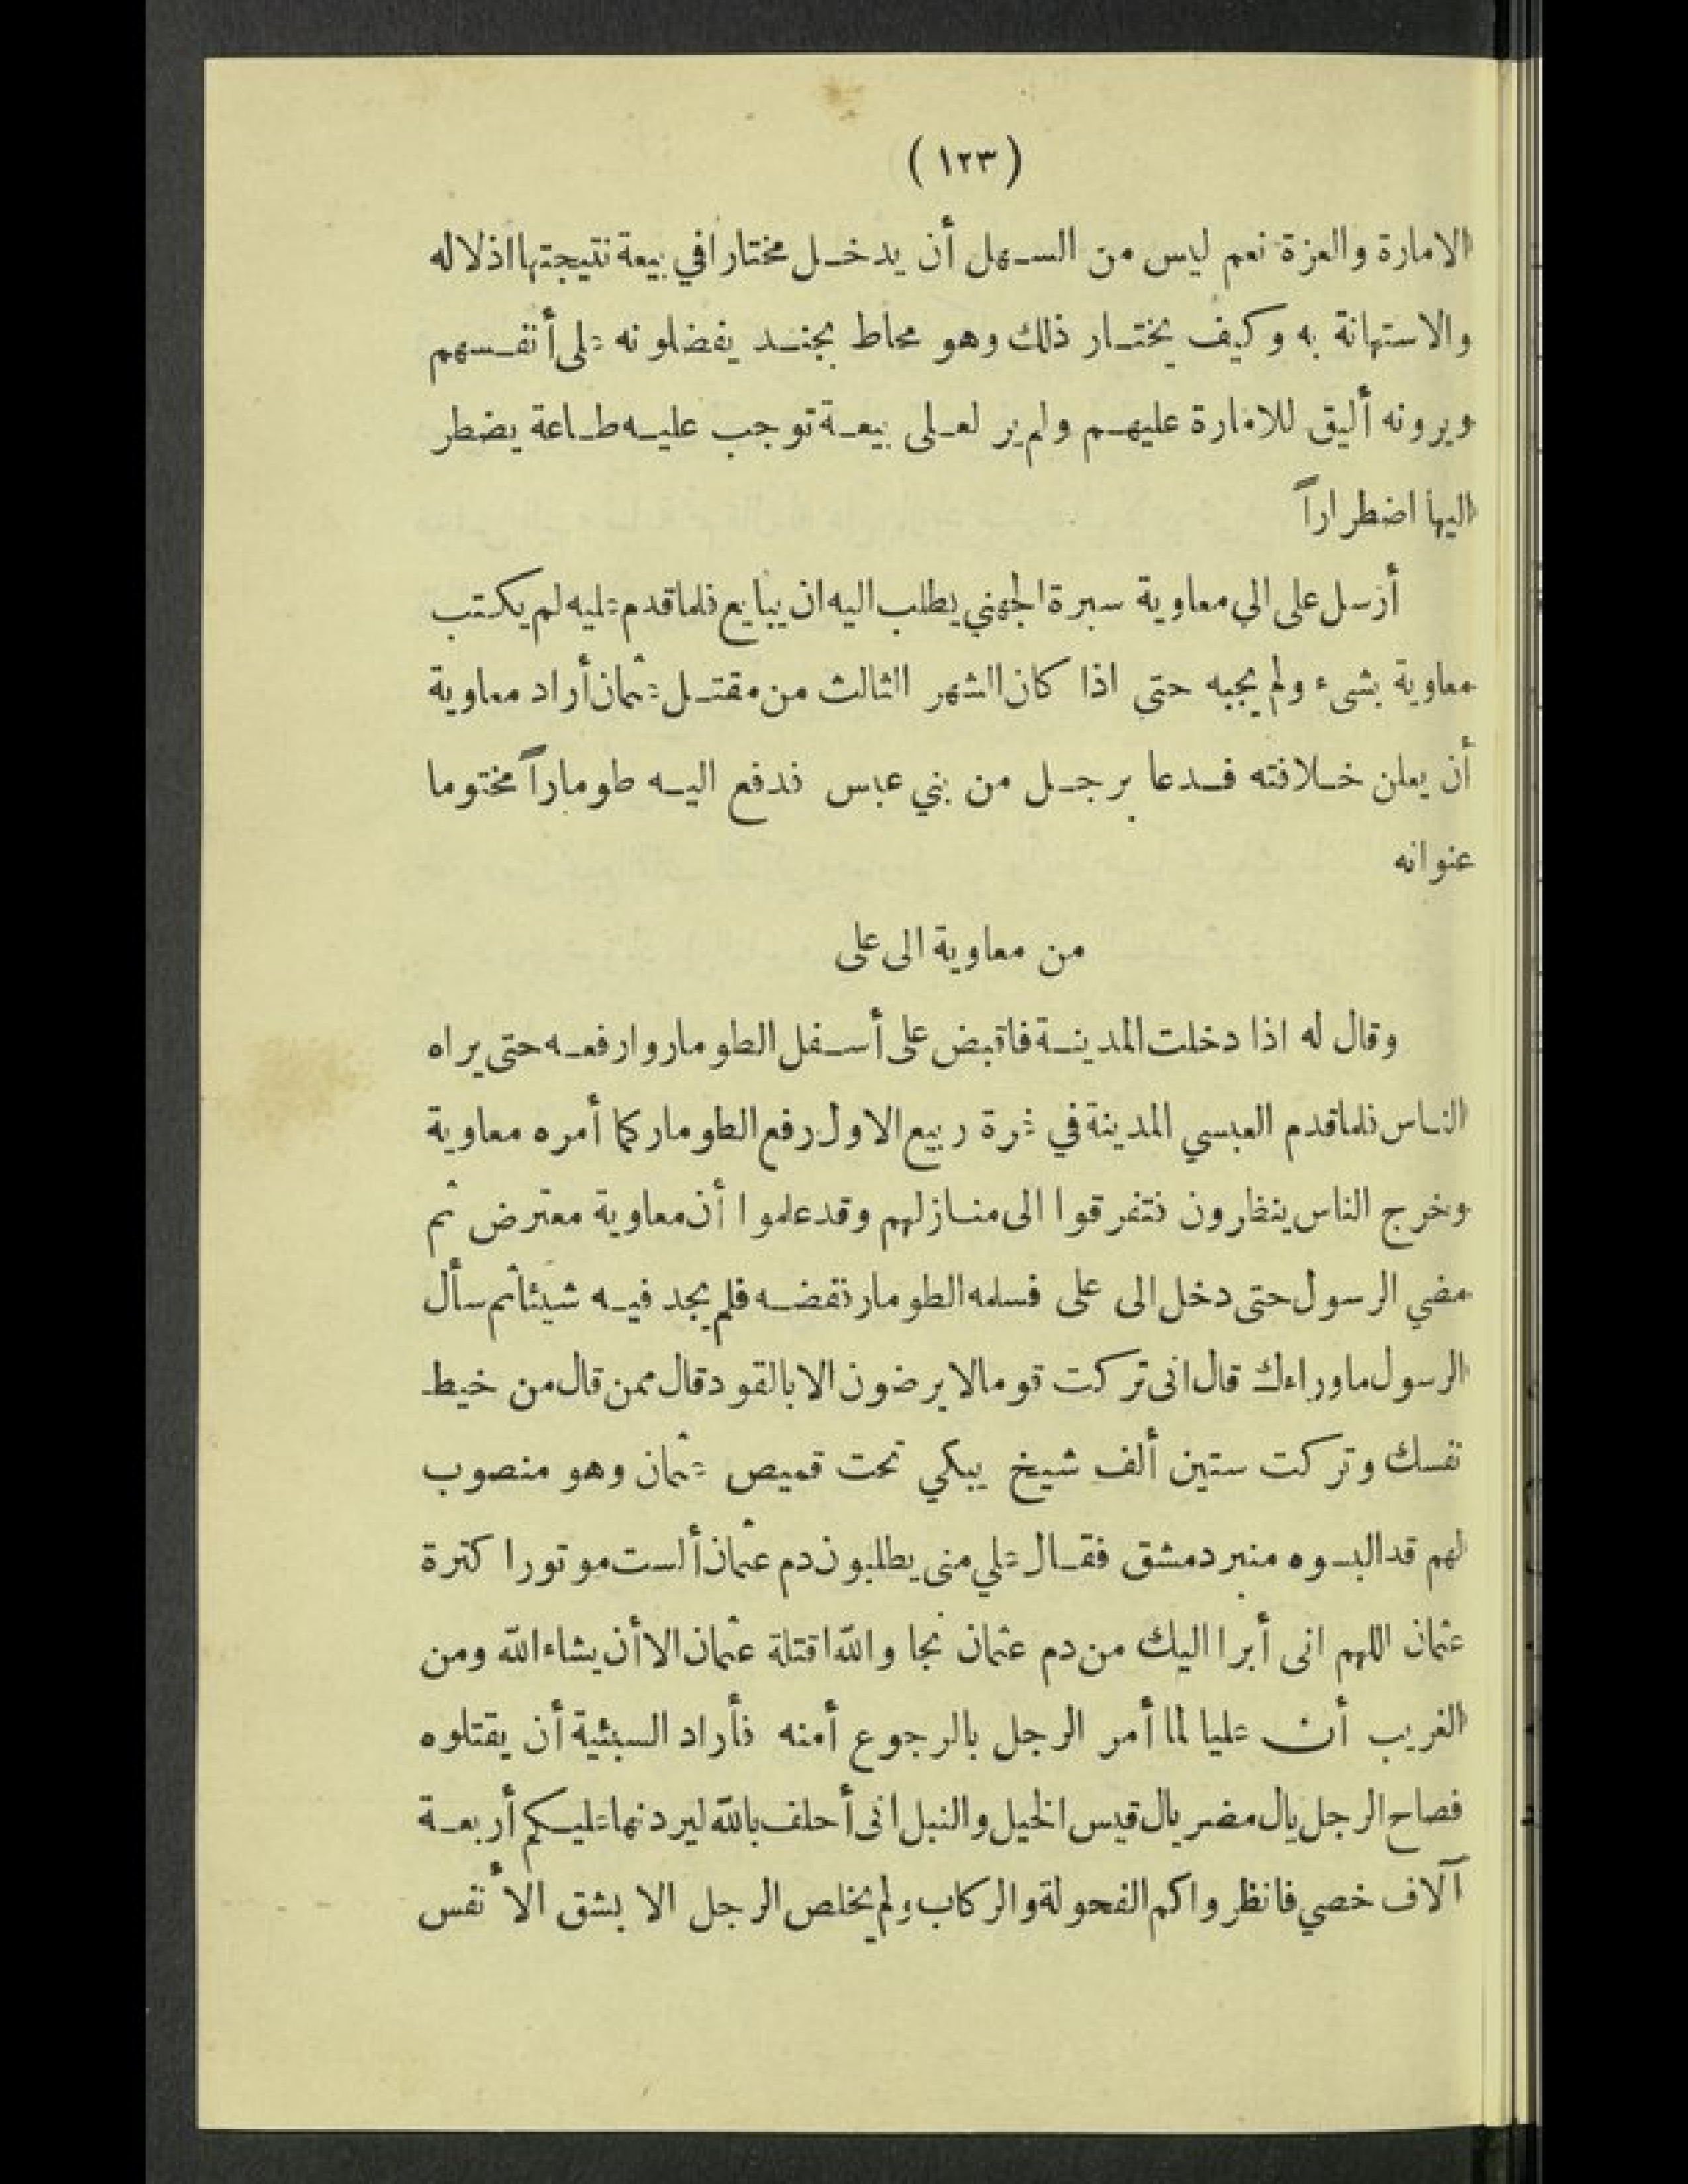 (١٢٣)
الامارة والعزة نعم ليس من السهل أن يدخل مختارا في بيعة نتيجتها اذلاله
والاستهانة به وكيف يختار ذلك وهو محاط بجند يفضلونه على أنفسهم
ويرونه أليق للامارة عليهم ولم ير لعلى بيعة توجب عليه طاعة يضطر
اليها اضطراراً
أرسل على الى معاوية سبرة الجهني يطلب اليه ان يبايع فلما قدم عليه لم يكتب
معاوية بشىء ولم يجبه حتى اذا كان الشهر الثالث من مقتل عثمان أراد معاوية
أن يعلن خلافته فدعا برجل من بني عبس فدفع اليه طوماراً مختوما
عنوانه
من معاوية الى على
وقال له اذا دخلت المدينة فاقبض على أسفل الطومار وارفعه حتى يراه
الناس فلما قدم العبسي المدينة في غرة ربيع الاول رفع الطومار كما أمره معاوية
وخرج الناس ينظرون فتفرقوا الى منازلهم وقد علموا أن معاوية معترض ثم
مضي الرسول حتى دخل الى على فسلمه الطومار ففضه فلم يجد فيه شيئا ثم سأل
الرسول ما وراءك قال انى تركت قوما لا يرضون الا بالقود قال ممن قال من خيط
نفسك وتركت ستين ألف شيخ يبكي تحت قميص عثمان وهو منصوب
لهم قد البسوه منبر دمشق فقال علي منى يطلبون دم عثمان ألست موتورا كترة
عثمان اللهم انى أبرا اليك من دم عثمان نجا والله اقتلة عثمان الا أن يشاء الله ومن
الغريب أن عليا لما أمر الرجل بالرجوع أمنه فأراد السبئية أن يقتلوه
فصاح الرجل يال مضر يال قيس الخيل والنبل انى أحلف بالله ليردنها عليكم أربعة
آلاف خصي فانظروا كم الفحولة والركاب ولم يخلص الرجل الا بشق الأنفس